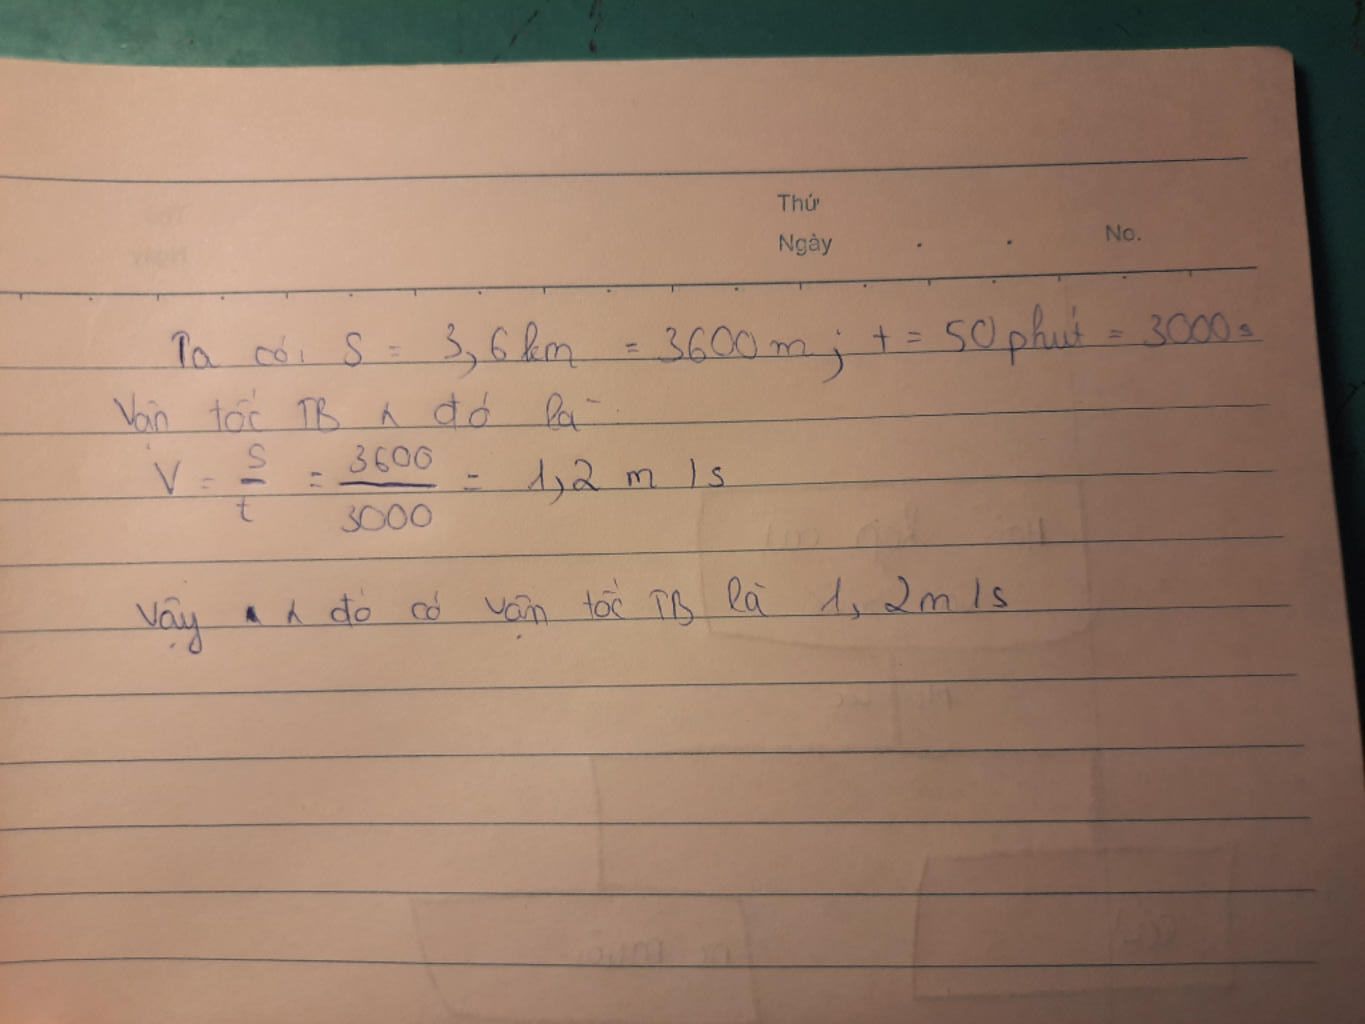 Thứ
Ngày . . No.
Ta có: S = 3,6 km = 3600 m ; t = 50 phút = 3000 s
Vận tốc TB đó là
V = S/t = 3600/3000 = 1,2 m/s
Vậy đó có vận tốc TB là 1,2 m/s